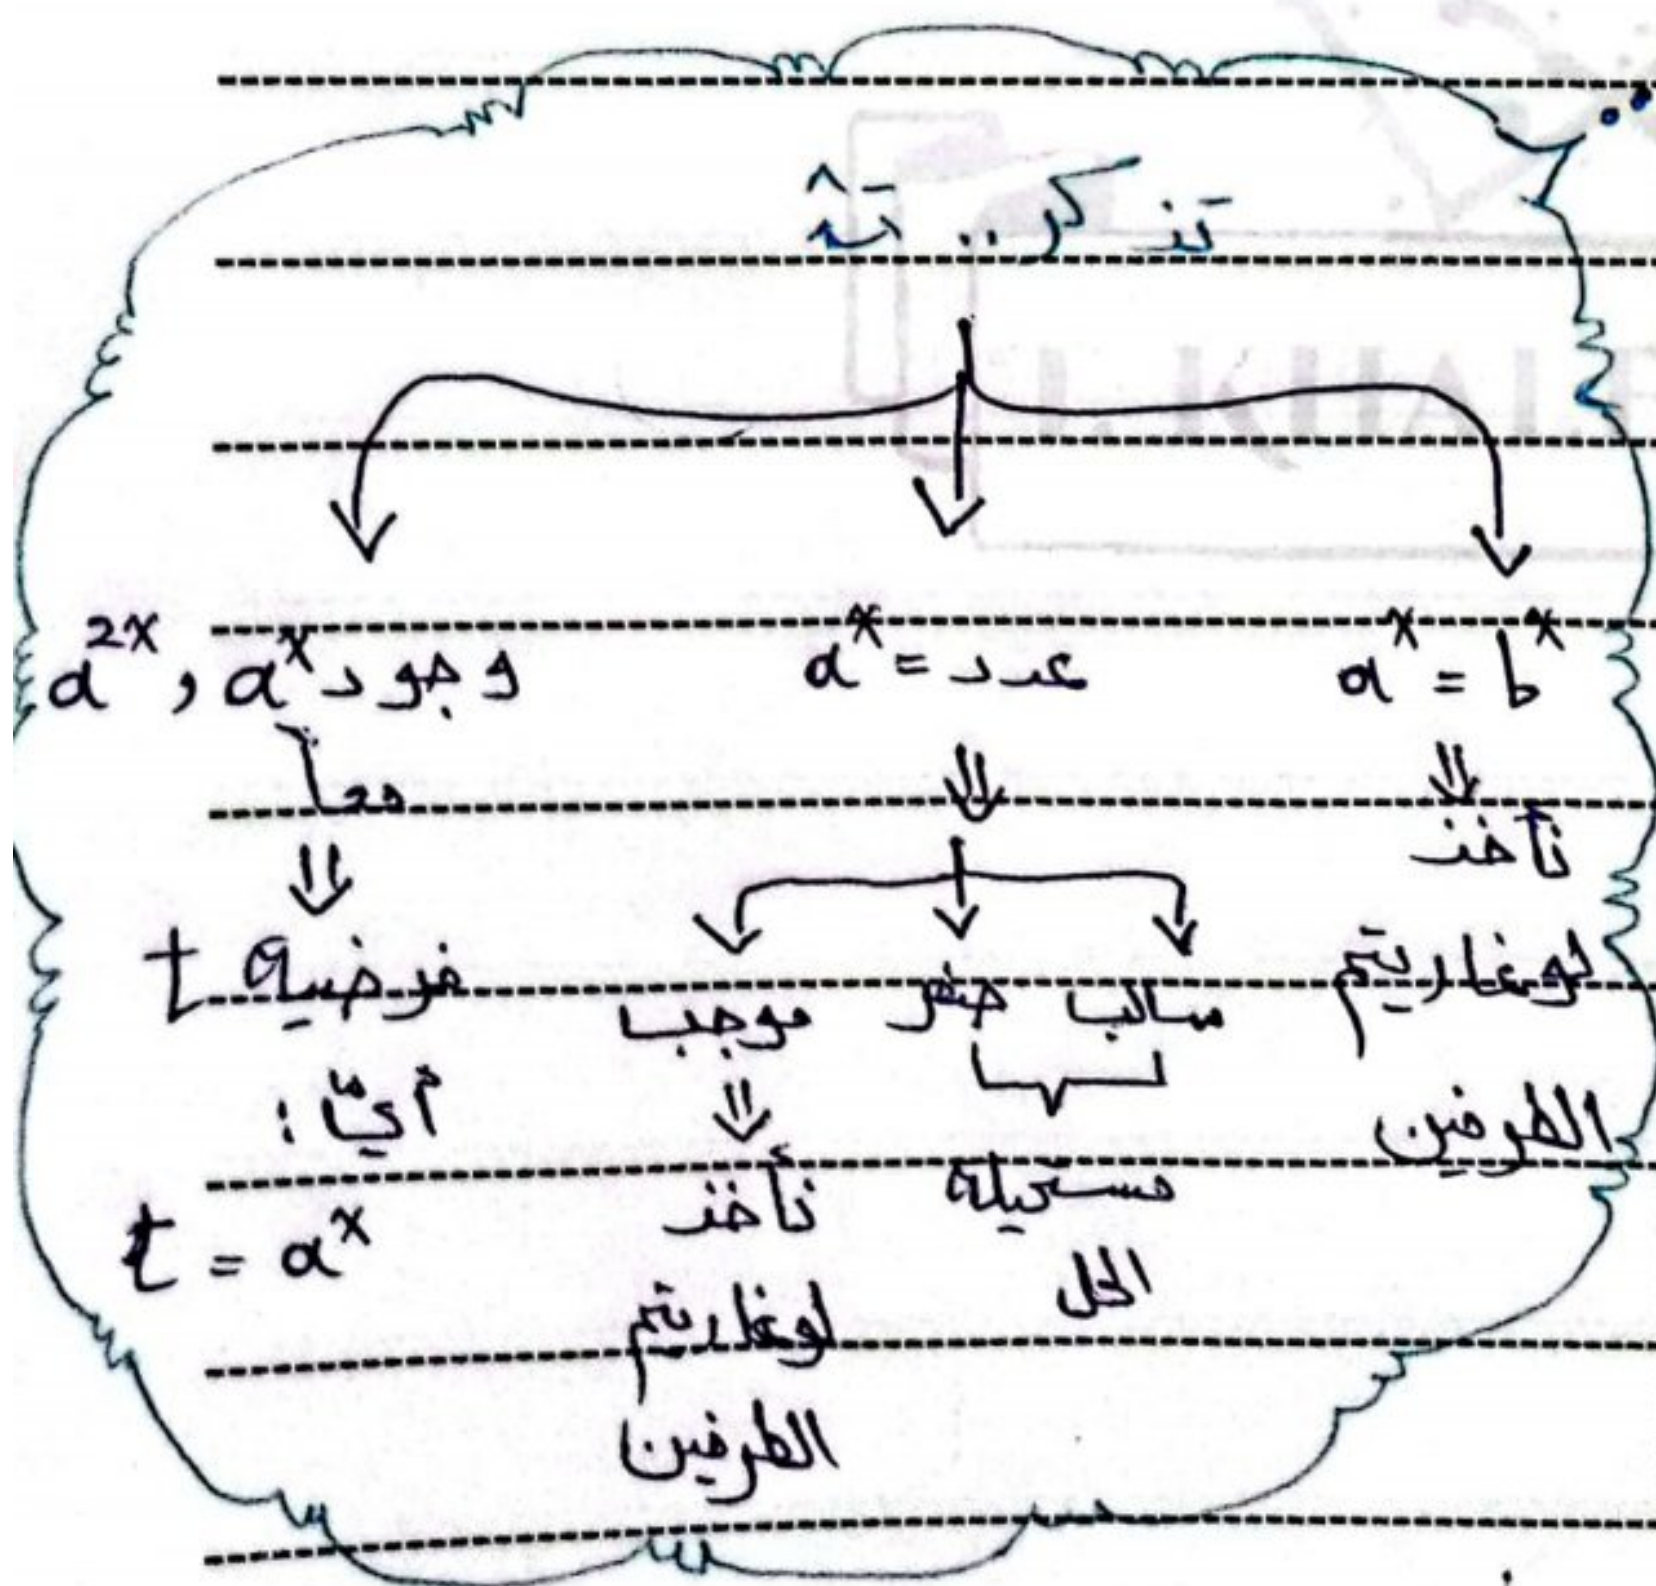 تذكر.. أنّه
a^x = b^x
نأخذ
لوغاريتم
الطرفين
a^x = عدد
سالب صفر موجب
مستحيلة
الحل
نأخذ
لوغاريتم
الطرفين
وجود a^{2x} , a^x
معاً
فرضية t
أيّ :
t = a^x